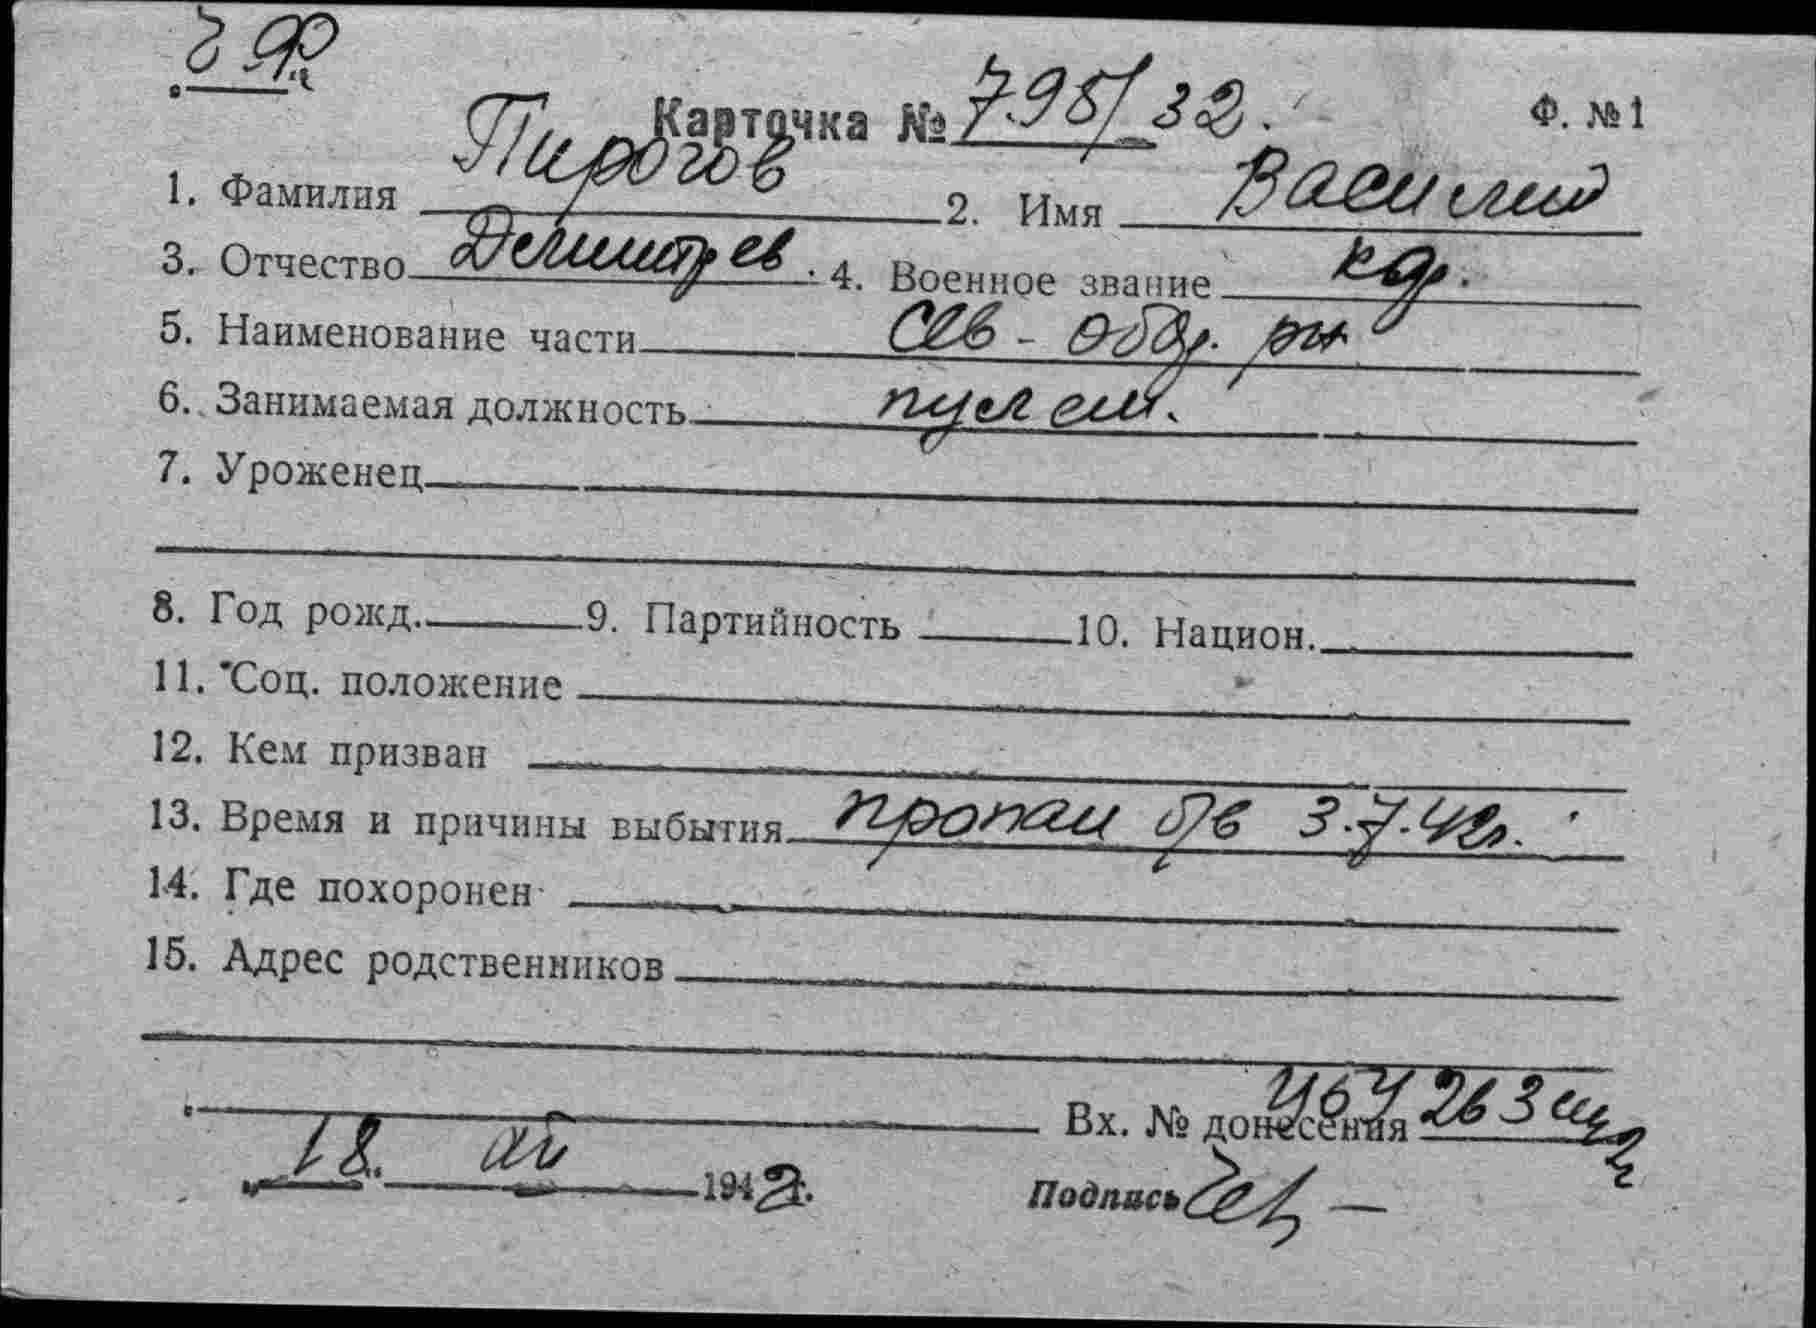 Карточка № 795/32.
Ф. № 1
1. Фамилия Пирогов 2. Имя Василий
3. Отчество Демитрев. 4. Военное звание кр.
5. Наименование части Сев - обор.
6. Занимаемая должность
7. Уроженец
8. Год рожд. 9. Партийность 10. Национ.
11. Соц. положение
12. Кем призван
13. Время и причины выбытия пропал б/в 3.7.42г.
14. Где похоронен
15. Адрес родственников
Вх. № донесения
18. 1942г.
Подпись